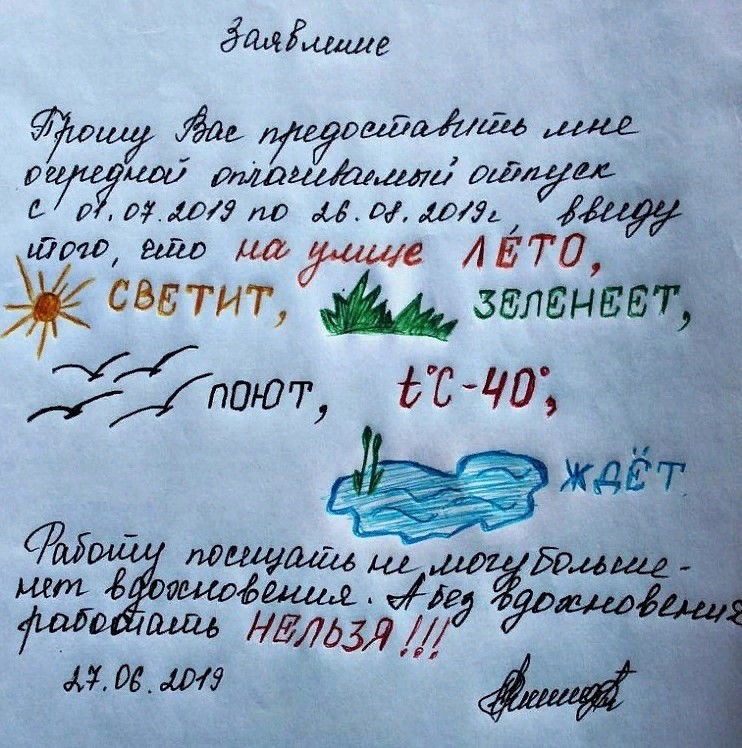 Заявление
Прошу Вас предоставить мне
очередной оплачиваемый отпуск
с 01.07.2019 по 26.08.2019г ввиду
того, что на улице ЛЕ́ТО,
СВЕТИТ, ЗЕЛЕНЕЕТ,
ПОЮТ, t°C-40°,
ЖДЁТ.
Работу посещать не могу больше-
нет вдохновения. А без вдохновения
работать НЕЛЬЗЯ!!!
27.06.2019